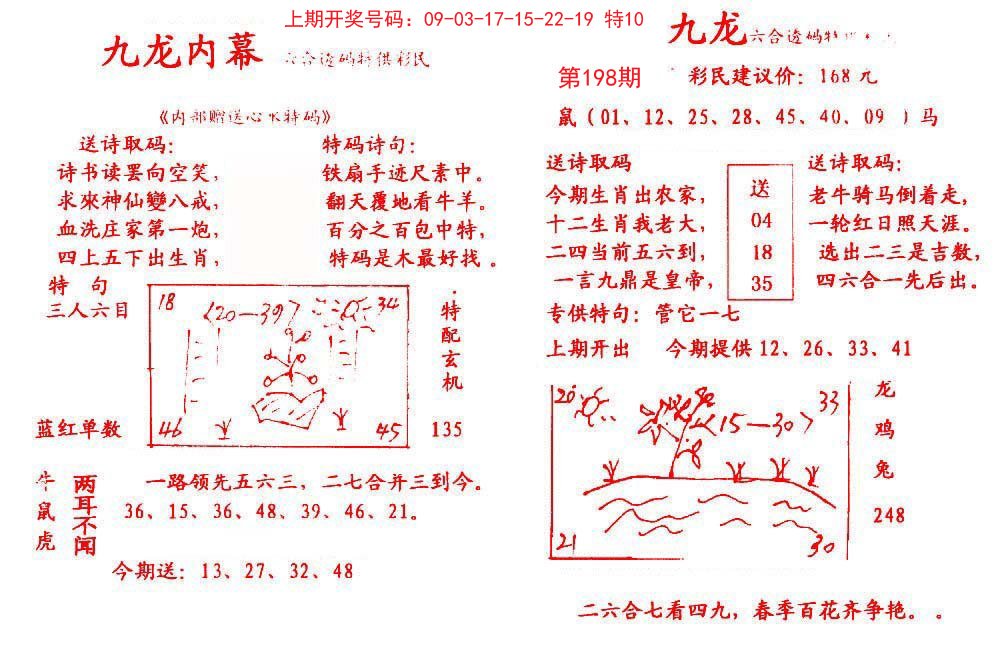 上期开奖号码：09-03-17-15-22-19 特10
九龙内幕
六合透码特供彩民
《内部赠送心水特码》
送诗取码：
诗书读罢向空笑，
求來神仙變八戒，
血洗庄家第一炮，
四上五下出生肖，
特码诗句：
铁扇手迹尺素中。
翻天覆地看牛羊。
百分之百包中特，
特码是木最好找。
特 句
三人六目
蓝红单数
18
〈20—39〉
34
46
45
特配玄机
135
牛鼠虎
两耳不闻
一路领先五六三，二七合并三到今。
36、15、36、48、39、46、21。
今期送：13、27、32、48
九龙
六合透码特
第198期
彩民建议价：168元
鼠（01、12、25、28、45、40、09 ）马
送诗取码
今期生肖出农家，
十二生肖我老大，
二四当前五六到，
一言九鼎是皇帝，
送
04
18
35
送诗取码：
老牛骑马倒着走，
一轮红日照天涯。
选出二三是吉数，
四六合一先后出。
专供特句：管它一七
上期开出 今期提供12、26、33、41
20
〈15—30〉
33
21
30
龙
鸡
兔
248
二六合七看四九，春季百花齐争艳。。